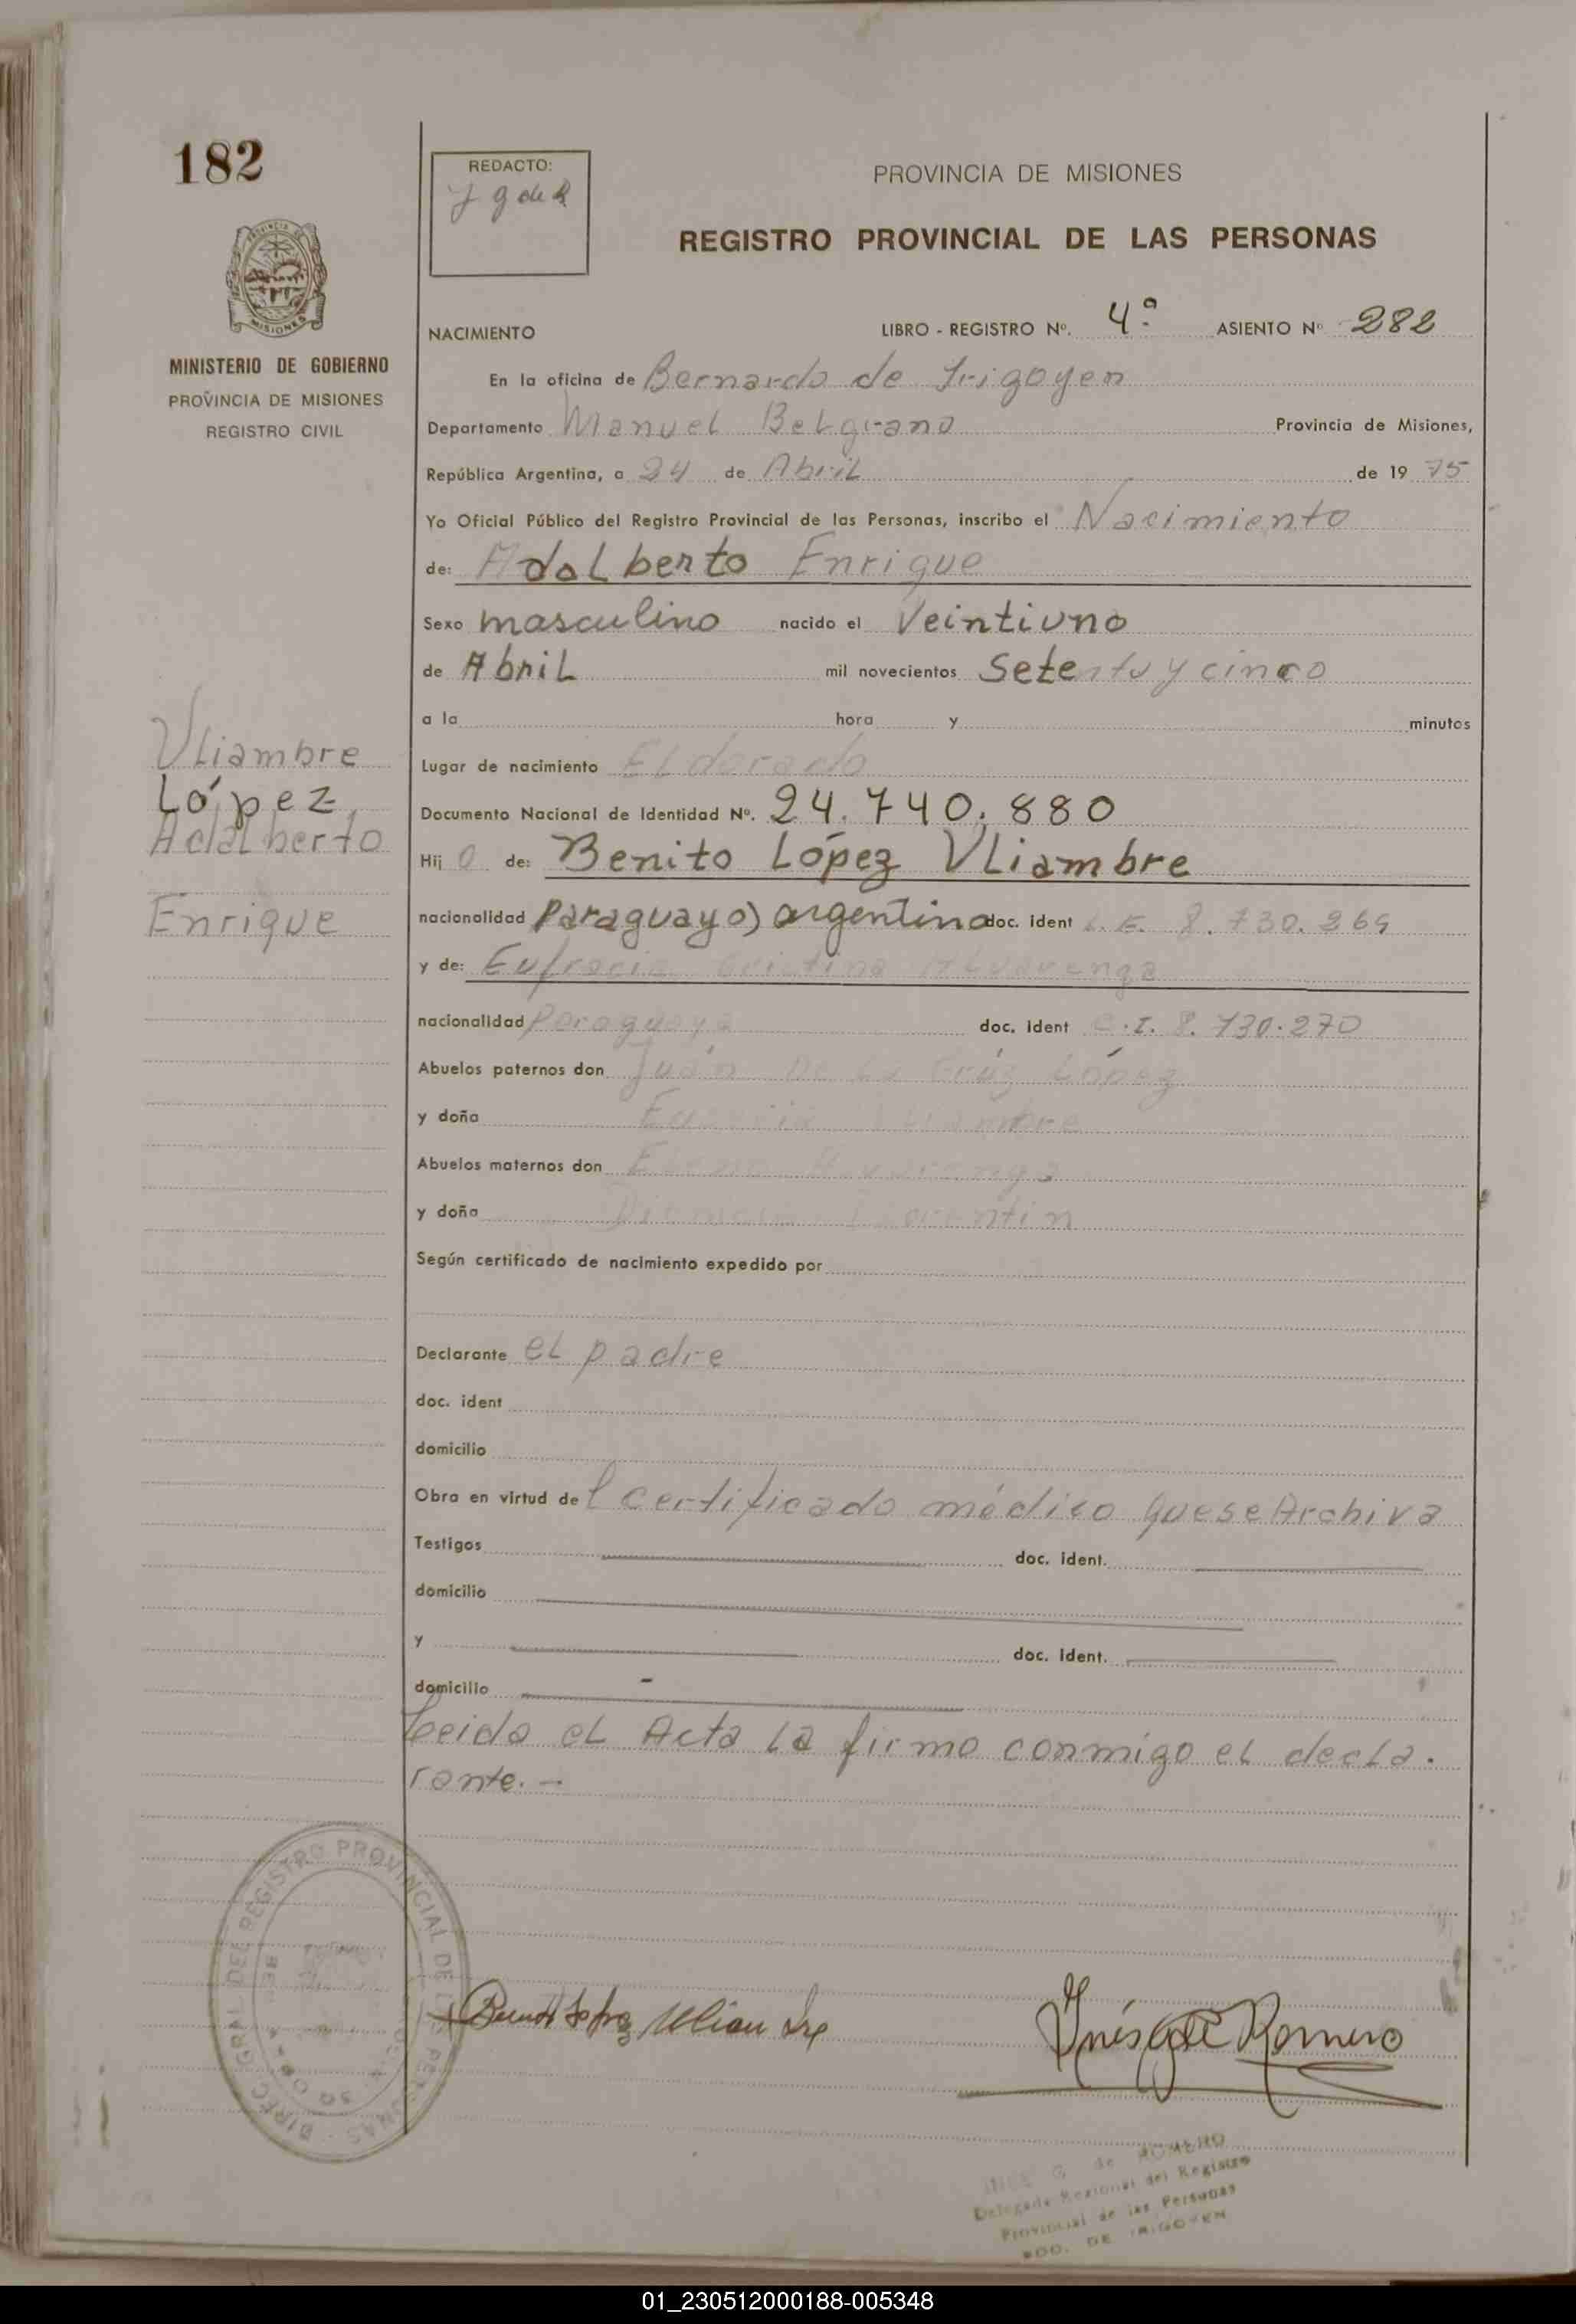 182
REDACTO:
PROVINCIA DE MISIONES
REGISTRO PROVINCIAL DE LAS PERSONAS
MISIONES
MINISTERIO DE GOBIERNO
PROVINCIA DE MISIONES
REGISTRO CIVIL
NACIMIENTO LIBRO - REGISTRO Nº. 4º ASIENTO Nº 282
En la oficina de Bernardo de Irigoyen
Departamento Manuel Belgrano Provincia de Misiones,
República Argentina, a 24 de Abril de 19 75
Yo Oficial Público del Registro Provincial de las Personas, inscribo el Nacimiento
de: Adalberto Enrique
Sexo masculino nacido el Veintiuno
de Abril mil novecientos Setenta y cinco
a la hora y minutos
Lugar de nacimiento Eldorado
Documento Nacional de Identidad Nº. 24.740.880
Hij o de: Benito López Vliambre
nacionalidad Paraguayo) argentino doc. ident L.E. 8.730.269
y de: Eufracia Cristina Alvarenga
nacionalidad Paraguaya doc. ident C.I. 8.730.270
Abuelos paternos don Juan De La Crúz López
y doña
Abuelos maternos don Alvarenga
y doña
Según certificado de nacimiento expedido por
Declarante el padre
doc. ident
domicilio
Obra en virtud de l certificado médico que se Archiva
Testigos doc. ident.
domicilio
y doc. ident.
domicilio
Leida el Acta la firma conmigo el decla.
rante. -
Vliambre
López
Adalberto
Enrique
DIREC. GRAL. DEL REGISTRO PROVINCIAL DE LAS PERSONAS
Inés G de Romero
INES G. de ROMERO
Delegada Regional del Registro
Provincial de las Personas
BDO. DE IRIGOYEN
01_230512000188-005348